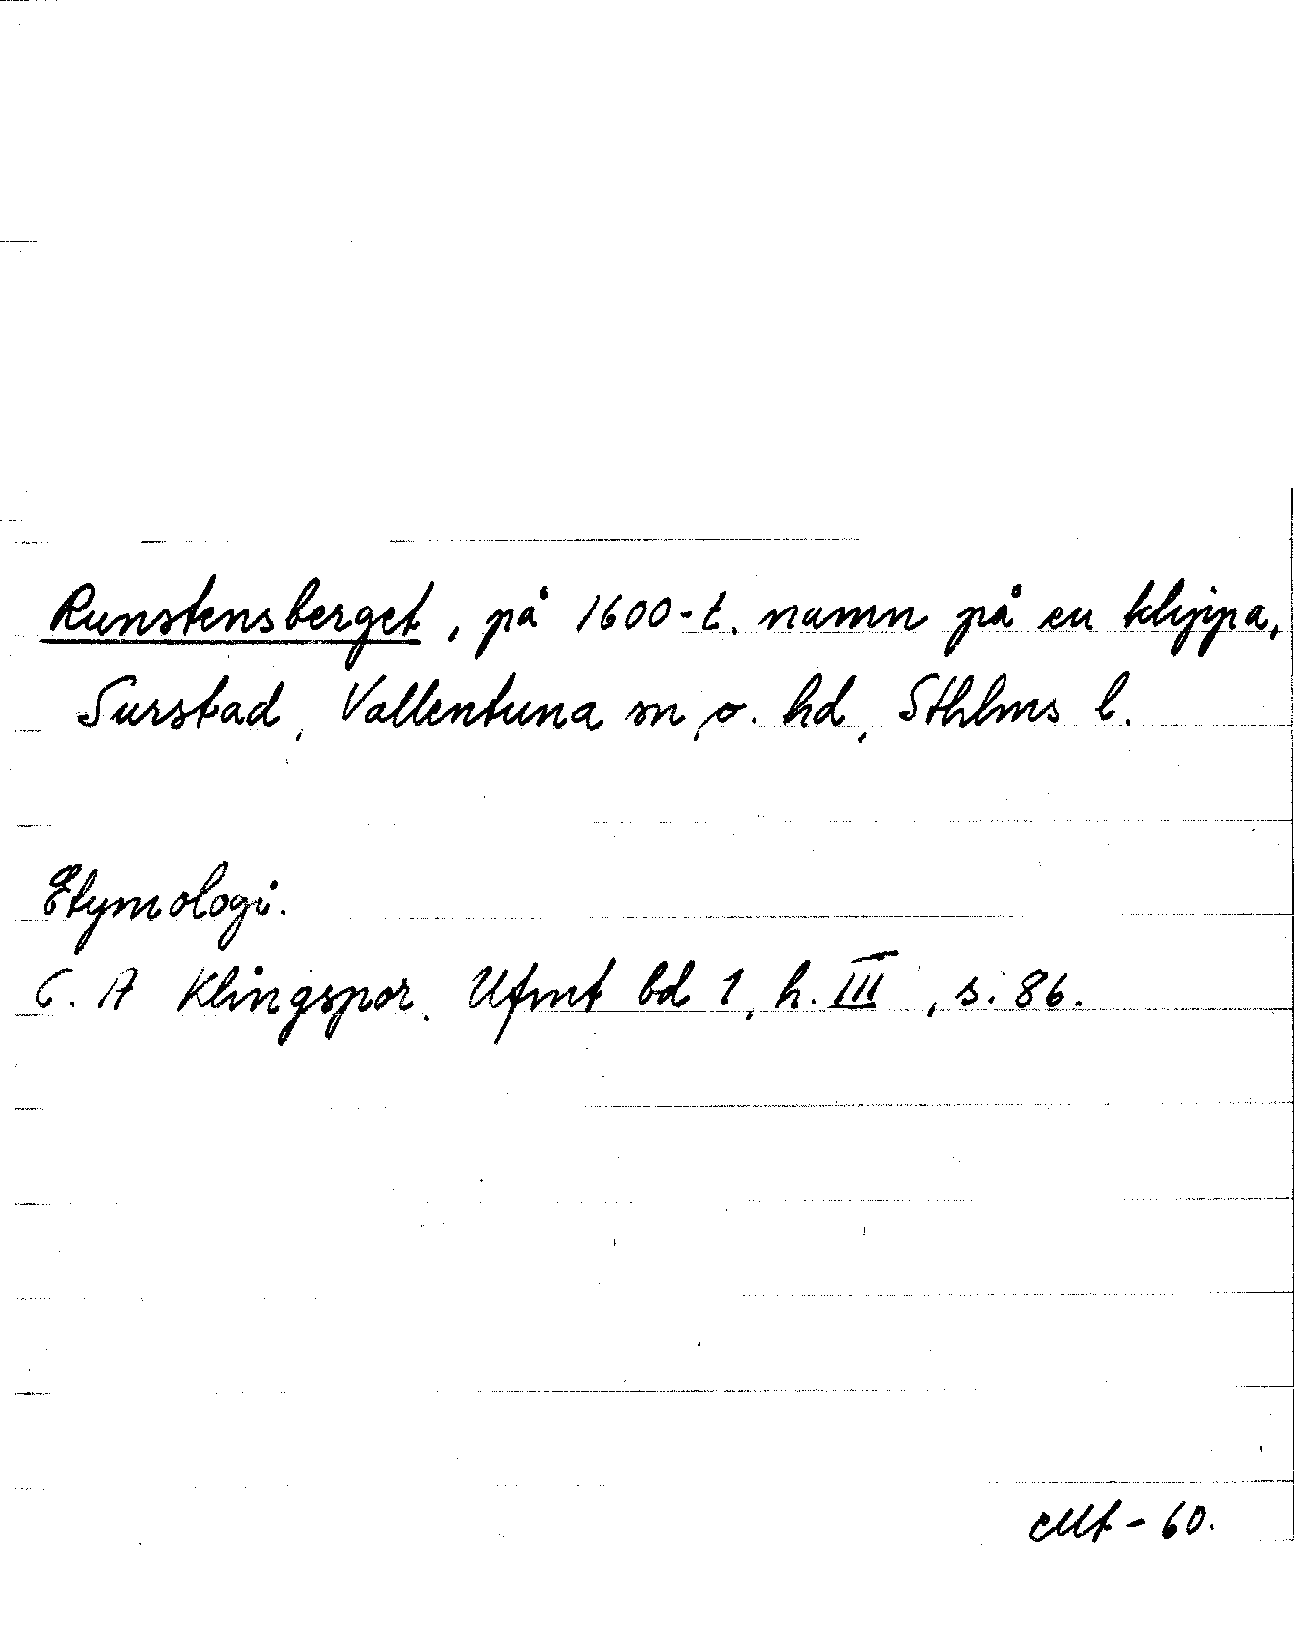 Runstensberget, på 1600-t. namn på en klippa,
Surstad, Vallentuna sn o. hd, Sthlms l.
Etymologi.
C. A Klingspor. Ufmt bd 1, h. III, s. 86.
-60.